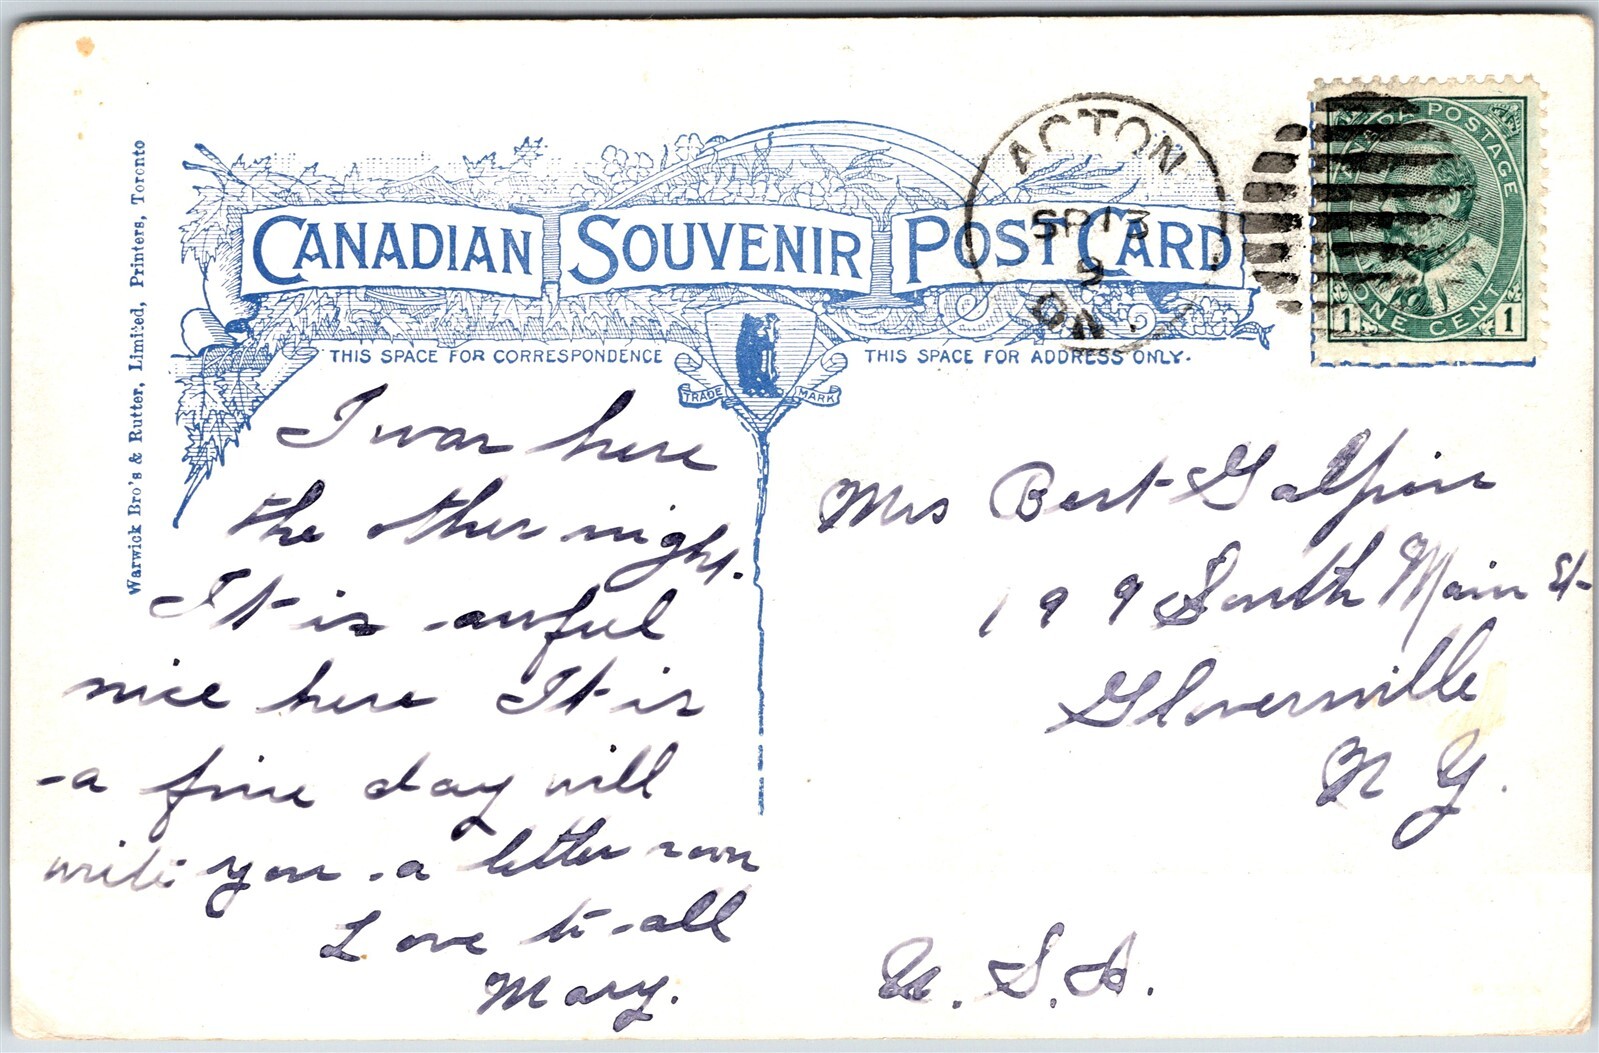 CANADIAN SOUVENIR POST CARD
THIS SPACE FOR CORRESPONDENCE
THIS SPACE FOR ADDRESS ONLY.
TRADE MARK
Warwick Bro's & Rutter, Limited, Printers, Toronto
ACTON
SP 13
9
ON
POSTAGE
ONE CENT
1 1
I was here
the other night.
It is awful
nice here It is
a fine day will
write you a letter soon
Love to all
Mary.
Mrs Bert Galpin
199 South Main St
Gloversville
N Y.
U.S.A.